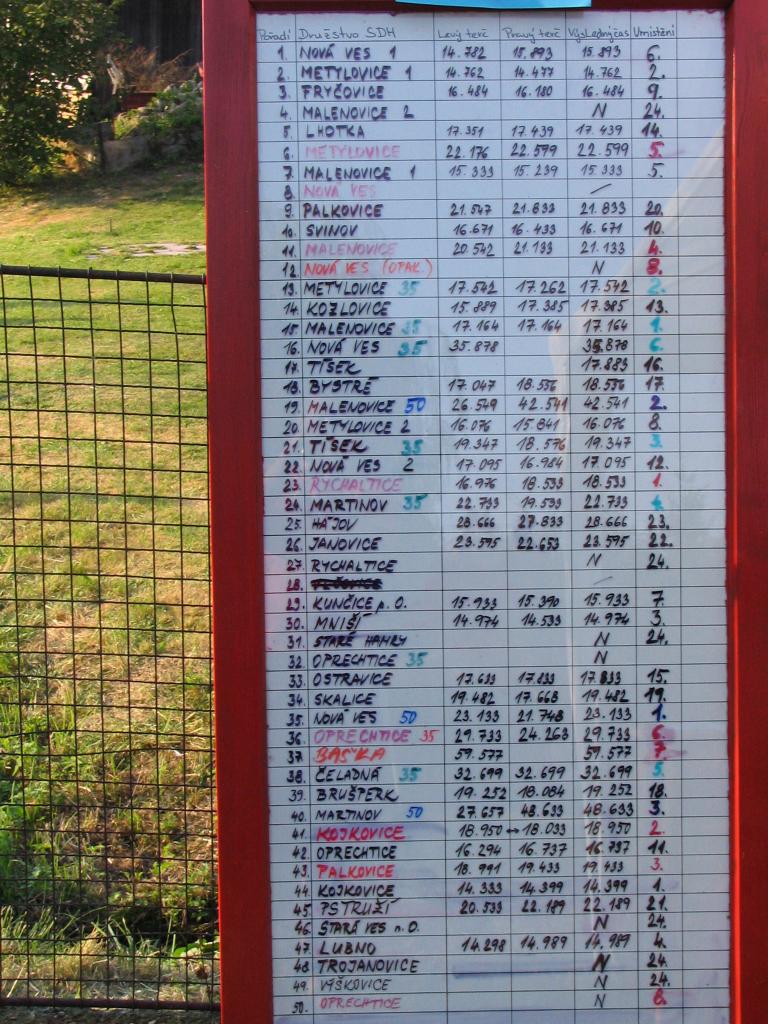 Pořadí Družstvo SDH Levý terč Pravý terč Výsledný čas Umístění
1. NOVÁ VES 1 14.782 15.893 15.893 6.
2. METYLOVICE 1 14.762 14.477 14.762 2.
3. FRYČOVICE 16.484 16.180 16.484 9.
4. MALENOVICE 2 N 24.
5. LHOTKA 17.351 17.439 17.439 14.
6. METYLOVICE 22.176 22.599 22.599 5.
7. MALENOVICE 1 15.333 15.239 15.333 5.
8. NOVÁ VES —
9. PALKOVICE 21.547 21.833 21.833 20.
10. SVINOV 16.671 16.433 16.671 10.
11. MALENOVICE 20.542 21.133 21.133 4.
12. NOVÁ VES (OPAK.) N 8.
13. METYLOVICE 35 17.542 17.262 17.542 2.
14. KOZLOVICE 15.889 17.385 17.385 13.
15. MALENOVICE 35 17.164 17.164 17.164 1.
16. NOVÁ VES 35 35.878 35.878 6.
17. TÍSEK 17.883 16.
18. BYSTRÉ 17.047 18.536 18.536 17.
19. MALENOVICE 50 26.549 42.541 42.541 2.
20. METYLOVICE 2 16.076 15.841 16.076 8.
21. TÍSEK 35 19.347 18.576 19.347 3.
22. NOVÁ VES 2 17.095 16.984 17.095 12.
23. RYCHALTICE 16.976 18.533 18.533 1.
24. MARTINOV 35 22.733 19.533 22.733 4.
25. HÁJOV 28.666 27.833 28.666 23.
26. JANOVICE 23.595 22.653 23.595 22.
27. RYCHALTICE N 24.
28. —
29. KUNČICE p. O. 15.933 15.390 15.933 7.
30. MNIŠÍ 14.974 14.533 14.974 3.
31. STARÉ HAMRY N 24.
32. OPRECHTICE 35 N
33. OSTRAVICE 17.633 17.833 17.833 15.
34. SKALICE 19.482 17.668 19.482 19.
35. NOVÁ VES 50 23.133 21.748 23.133 1.
36. OPRECHTICE 35 29.733 24.263 29.733 6.
37. BAŠKA 59.577 59.577 7.
38. ČELADNÁ 35 32.699 32.699 32.699 5.
39. BRUŠPERK 19.252 18.084 19.252 18.
40. MARTINOV 50 27.657 48.633 48.633 3.
41. KOJKOVICE 18.950 ↔ 18.033 18.950 2.
42. OPRECHTICE 16.294 16.737 16.737 11.
43. PALKOVICE 18.991 19.433 19.433 3.
44. KOJKOVICE 14.333 14.399 14.399 1.
45. PSTRUŽÍ 20.533 22.189 22.189 21.
46. STARÁ VES n. O. N 24.
47. LUBNO 14.298 14.989 14.989 4.
48. TROJANOVICE N 24.
49. VÝŠKOVICE N 24.
50. OPRECHTICE N 8.